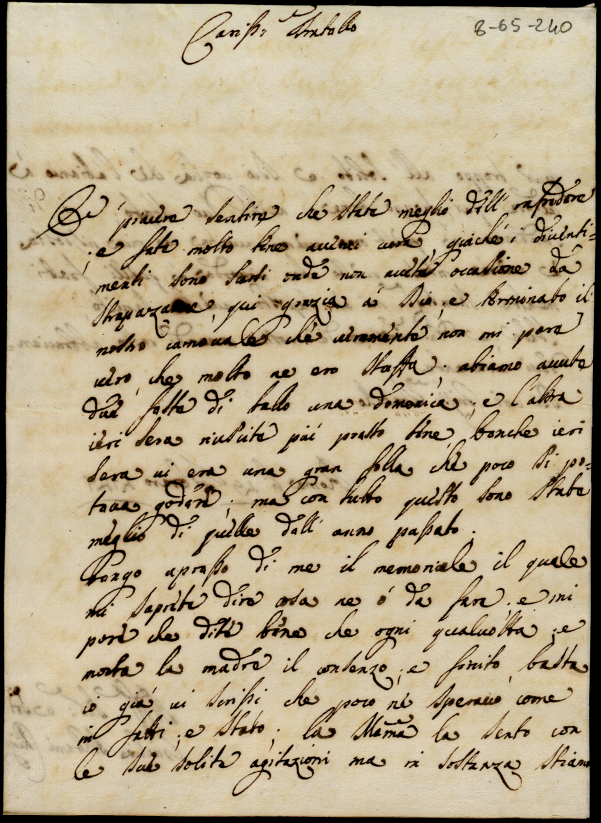 8-65-240
Cariss.e Fratello
piacere sentire che state meglio dell' rafredore
, e fate molto bene avervi cura, giaché i diverti=
menti sono tanti onde non avete occasione da
strapazzarvi, qui grazia a Dio, è terminato il
nostro carnovale che veramente non mi pare
vero, che molto ne ero stuffa, abiamo avute
due feste di ballo una domenica, e l'altra
ieri sera riuscite più presto bene, benche ieri
sera vi era una gran folla che poco si po=
teva godere, ma con tutto questo sono state
meglio di quelle dell' anno passato.
Tengo apresso di me il memoriale il quale
mi saprete dire cosa ne ó da fare, e mi
pare che dite bene che ogni qualvolta, e
morta la madre il consenzo, e finito, basta
io già vi scrissi che poco ne speravo, come
in fatti, e stato, la Mamà la sento con
le sue solite agitazioni ma in sostanza stiamo